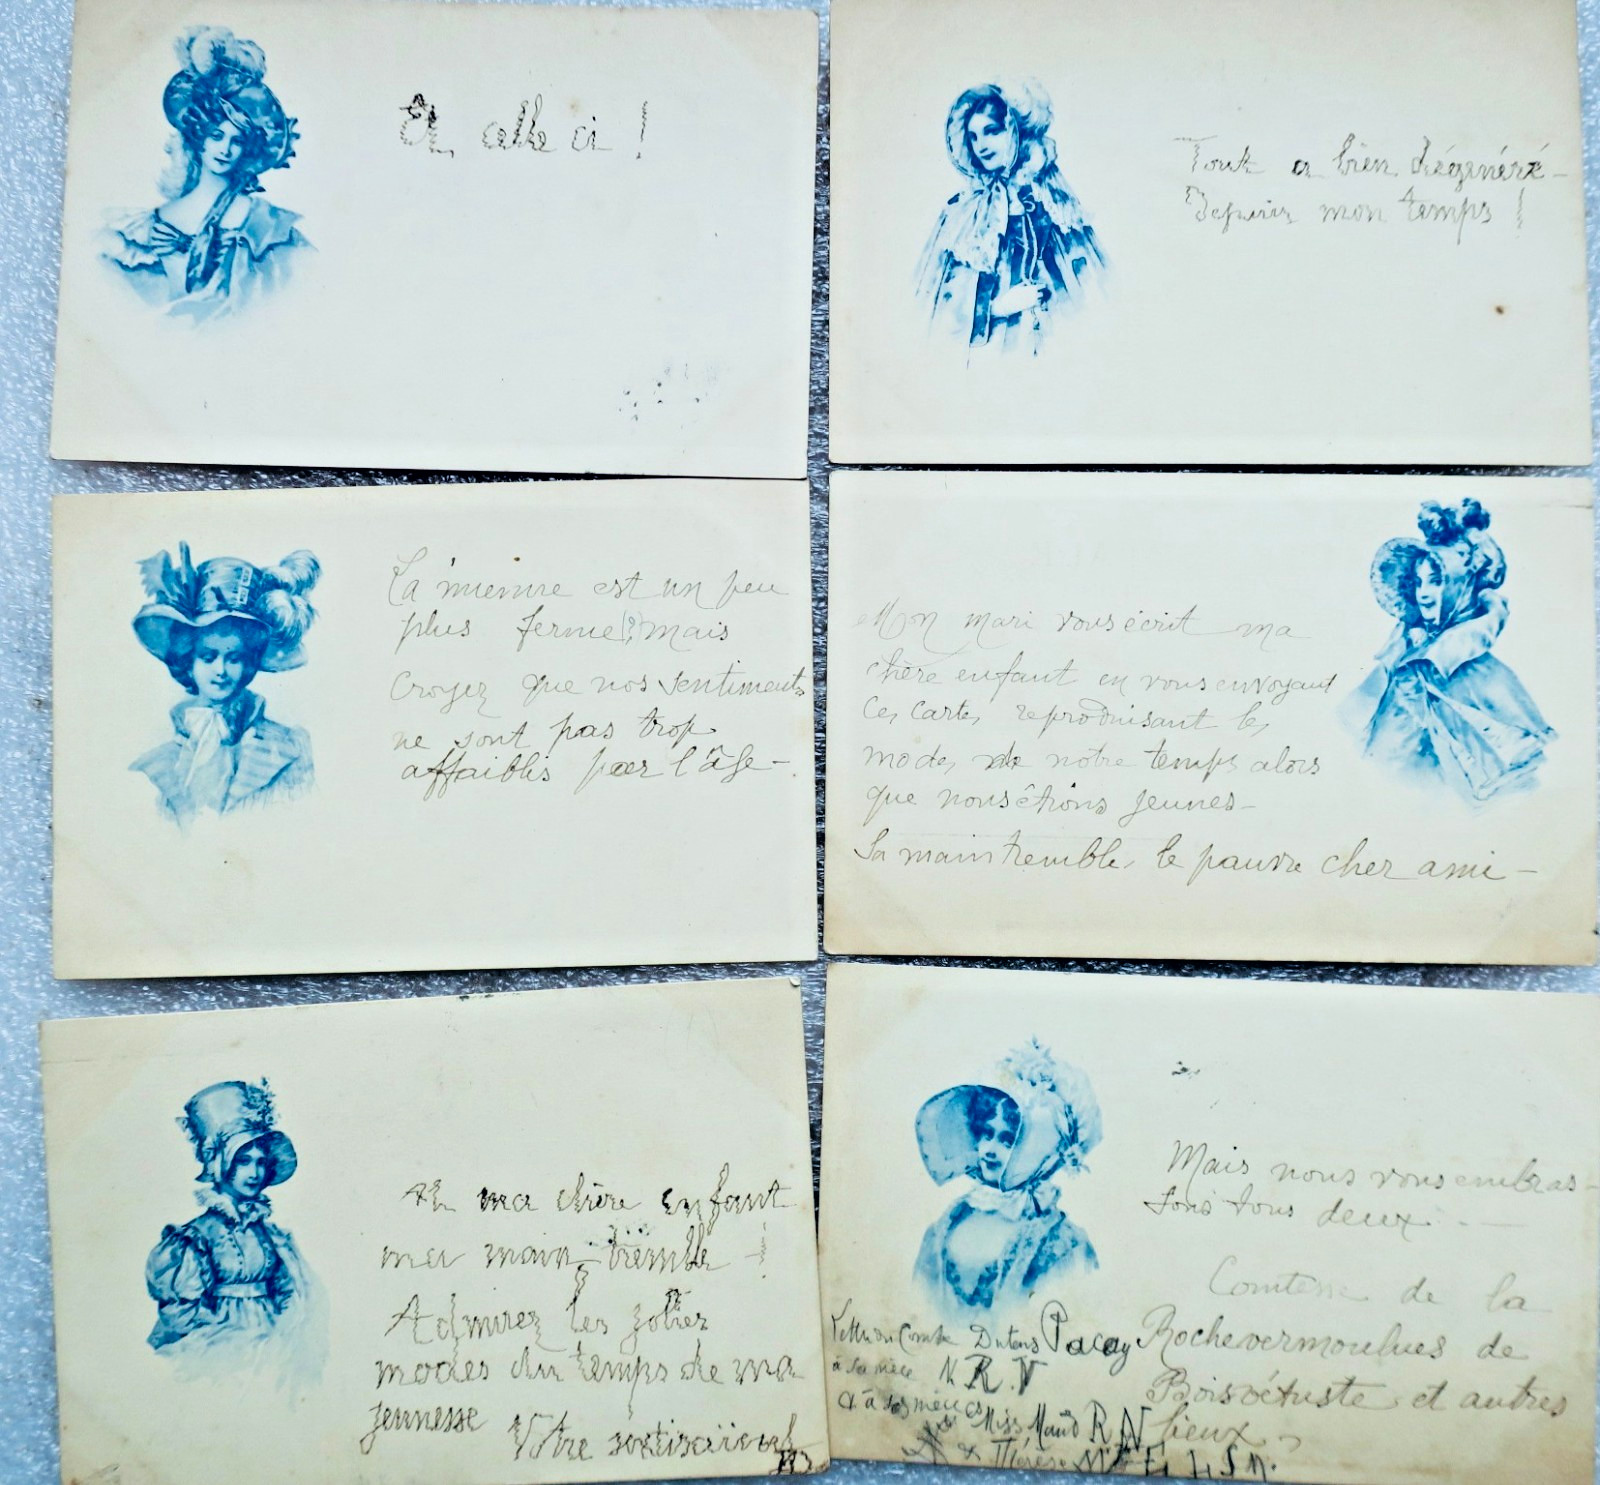 Et celle ci !
Tout a bien dégénéré -
Depuis mon temps !
La mienne est un peu
plus ferme, mais
Croyez que nos sentiments
ne sont pas trop
affaiblis par l'âge -
Mon mari vous écrit ma
chère enfant en vous envoyant
ces cartes reproduisant les
modes de notre temps alors
que nous étions jeunes -
Sa main tremble, le pauvre cher ami -
Ah ma chère enfant
ma main tremble - !
Admirez les jolies
modes du temps de ma
jeunesse
Votre
Mais nous vous embras-
sons tous deux. -
Comtesse de la
Rochevermoulues de
Boisvétuste et autres
lieux
Comte Pacay
à sa nièce N R. V
& à ses nièces
Miss Maud R N
& Thérèse